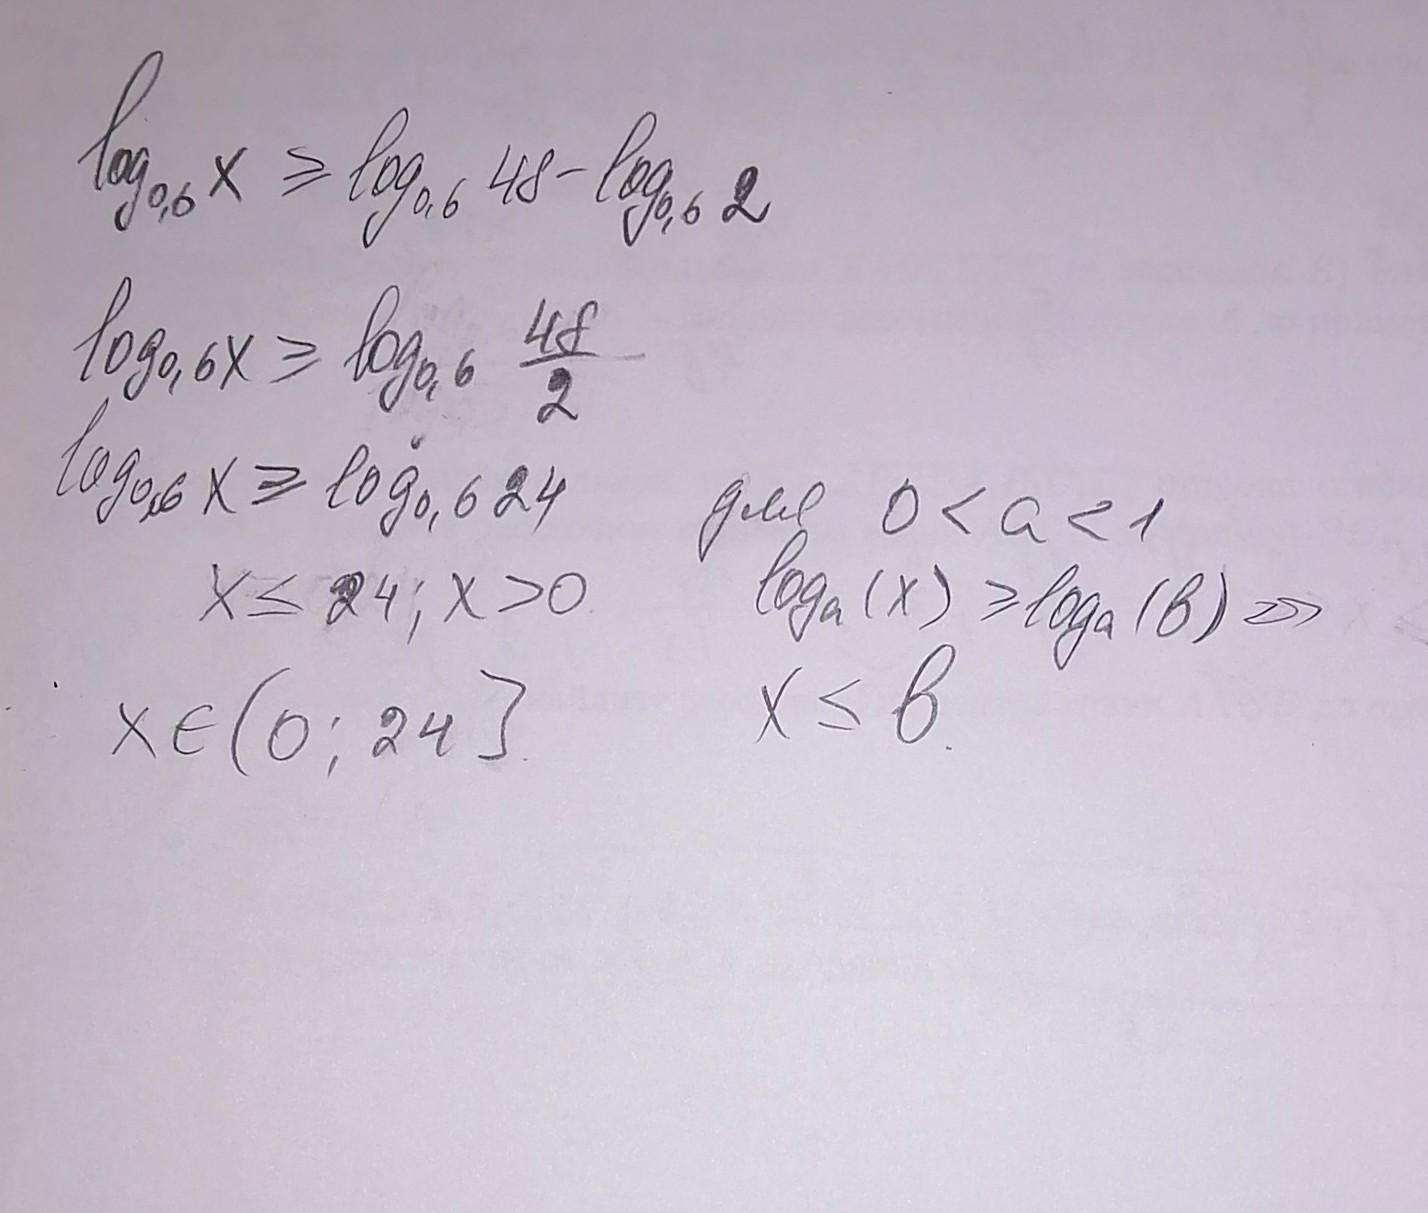 log₀,₆ x ⩾ log₀,₆ 48 - log₀,₆ 2
log₀,₆ x ⩾ log₀,₆ 48/2
log₀,₆ x ⩾ log₀,₆ 24
x ≤ 24; x > 0
x ∈ (0; 24]
для 0 < a < 1
logₐ (x) ⩾ logₐ (в) =>
x ≤ в.